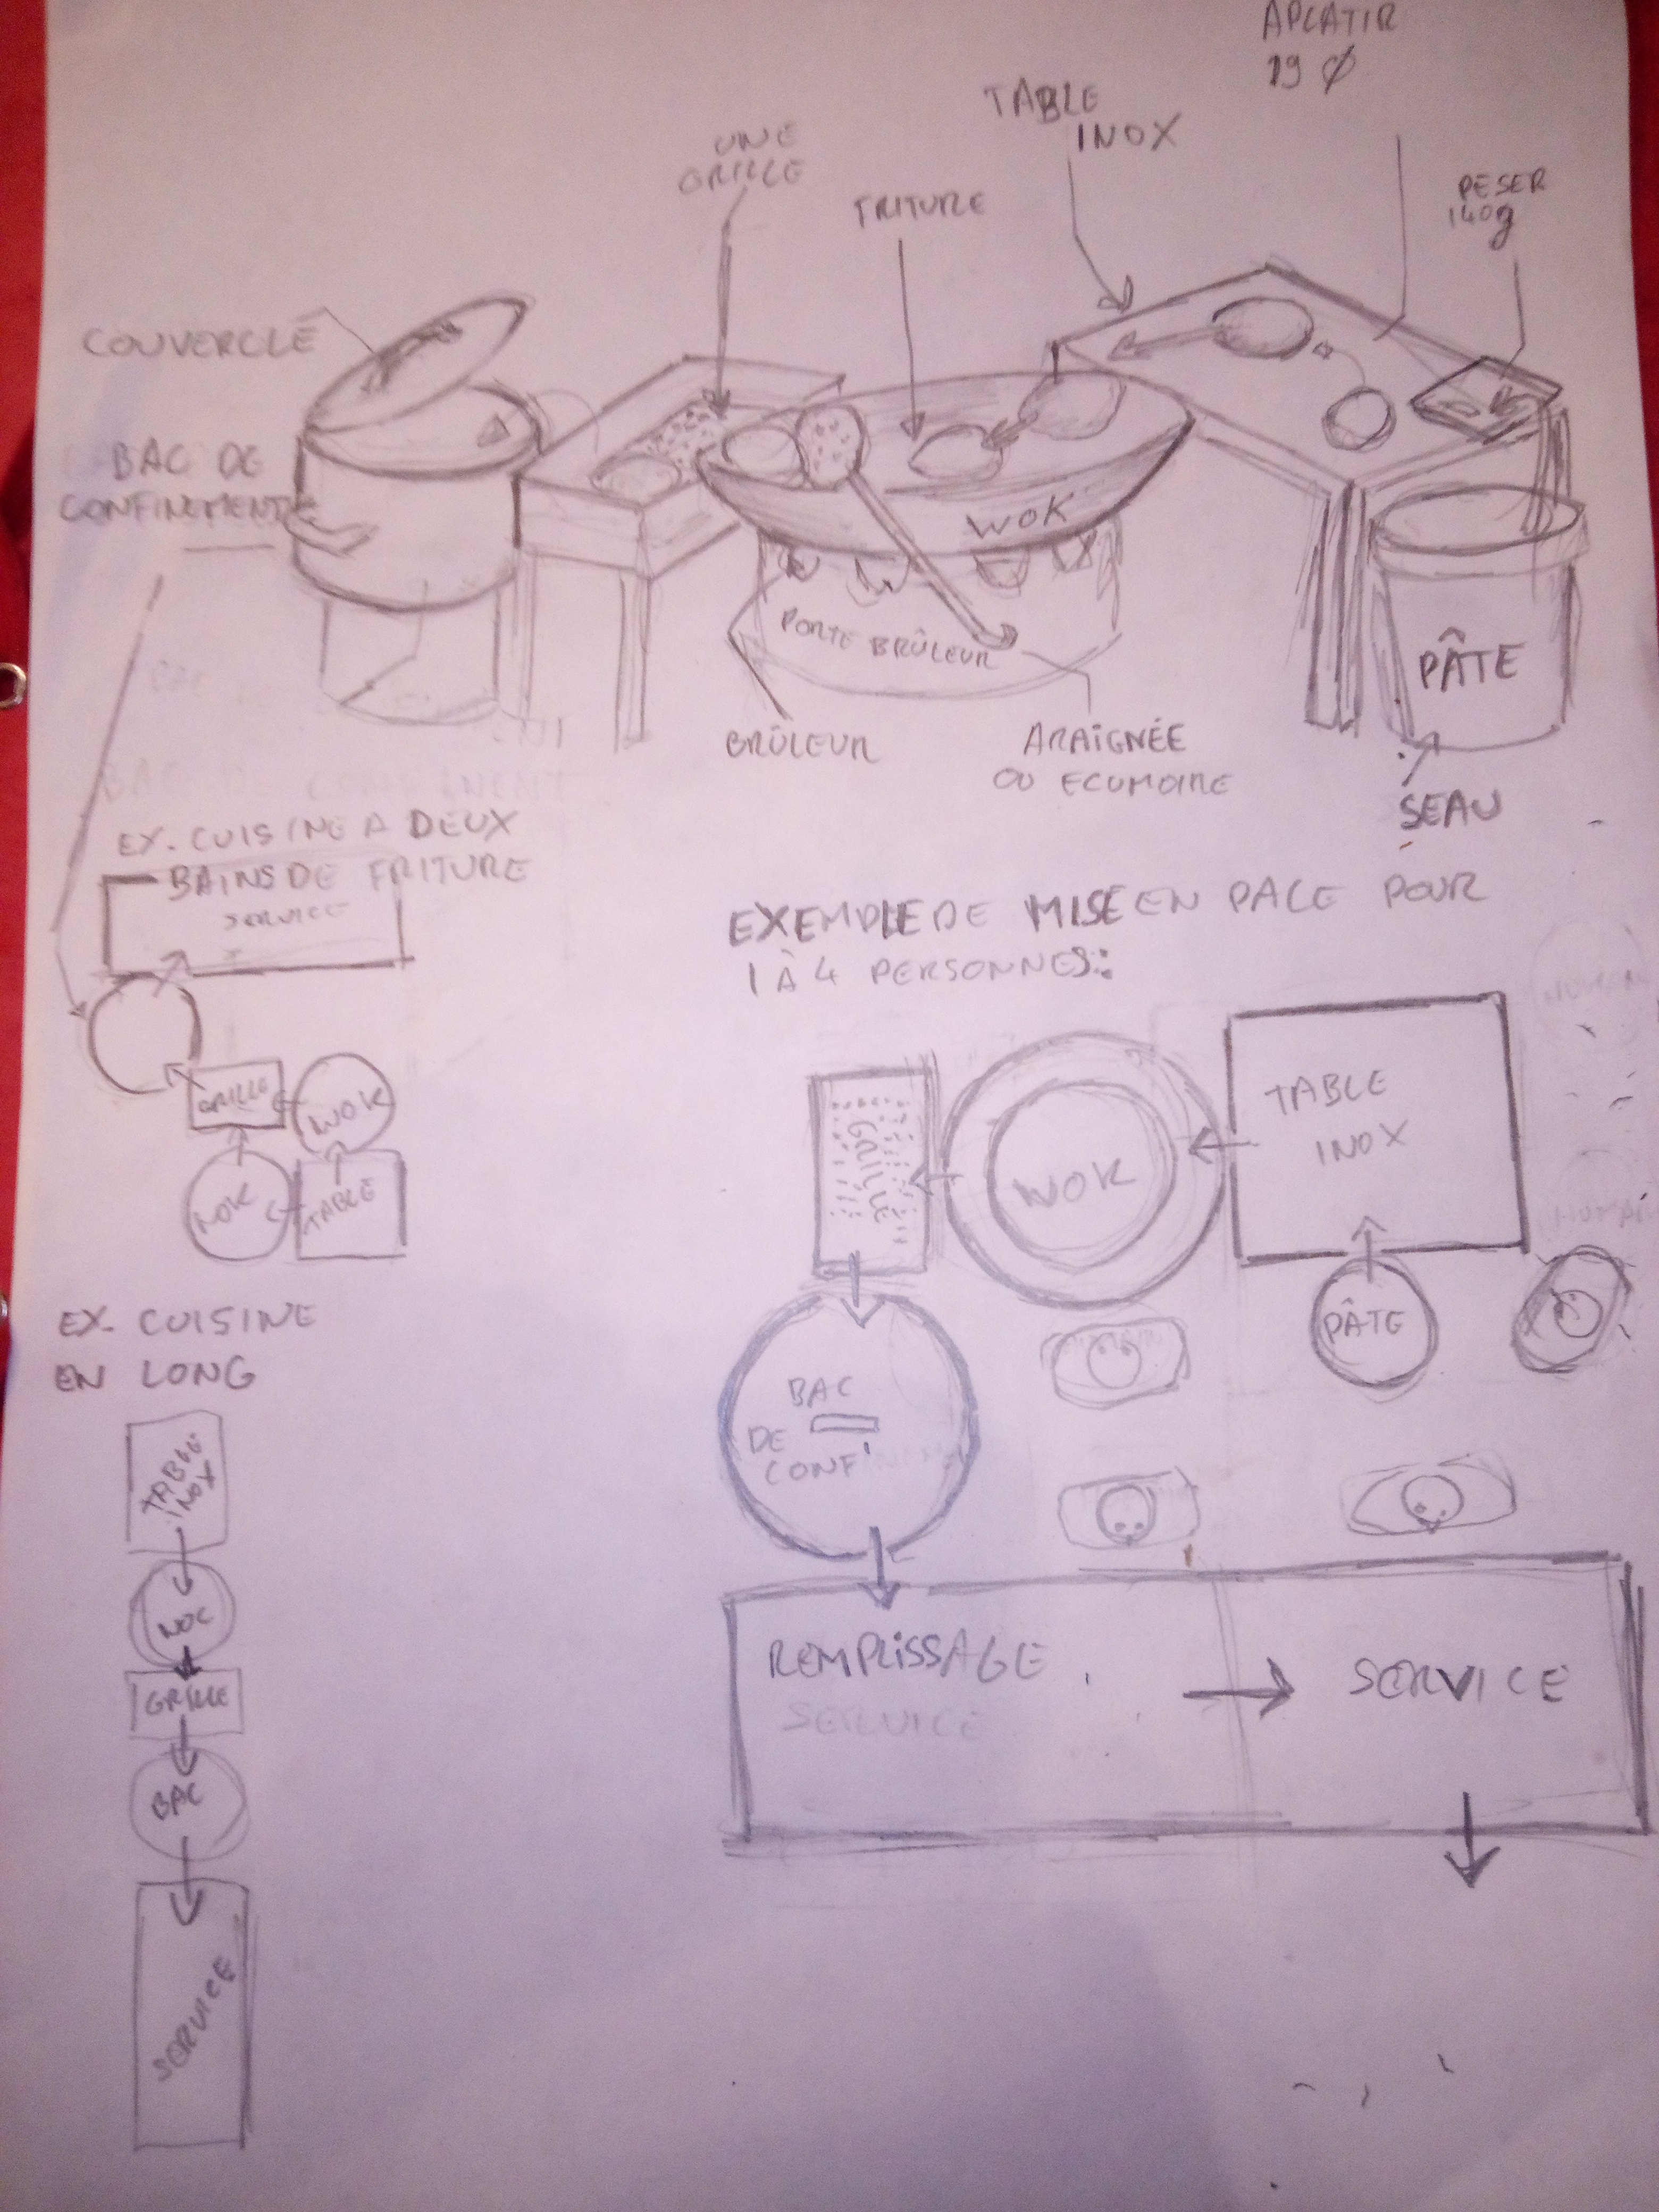 APLATIR
19 Ø
TABLE
INOX
UNE
GRILLE
FRITURE
PESER
140g
COUVERCLE
BAC DE
CONFINEMENT
WOK
PORTE BRÛLEUR
PÂTE
BRÛLEUR
ARAIGNÉE
OU ECUMOIRE
SEAU
EX. CUISINE A DEUX
BAINS DE FRITURE
SERVICE
GRILLE
WOK
WOK
TABLE
EXEMPLE DE MISE EN PACE POUR
1 À 4 PERSONNES:
TABLE
INOX
WOK
GRILLE
PÂTE
BAC
DE
CONF'
REMPLISSAGE
SERVICE
SERVICE
EX. CUISINE
EN LONG
TABLE
INOX
WOC
GRILLE
BAC
SERVICE